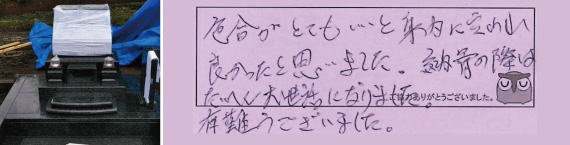 色合がとてもいいと身内に言われ
良かったと思いました。納骨の際は
たいへん大世話になりました。
ご協力ありがとうございました。
有難うございました。